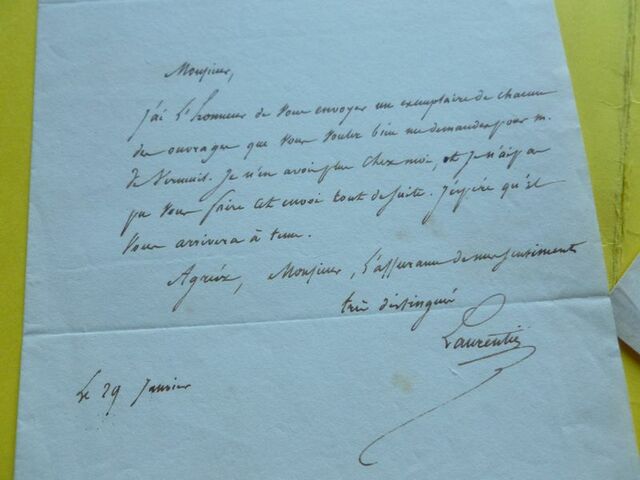 Monsieur,
J'ai l'honneur de vous envoyer un exemplaire de chacun
des ouvrages que vous voulez bien me demander pour m.
de Verneuil. Je n'en avois plus chez moi, et je n'ai pas
pu vous faire cet envoi tout de suite. J'espère qu'il
vous arrivera à tems.
Agréez, Monsieur, l'assurance de mes sentiments
très distingués
Laurentie
Le 29 Janvier